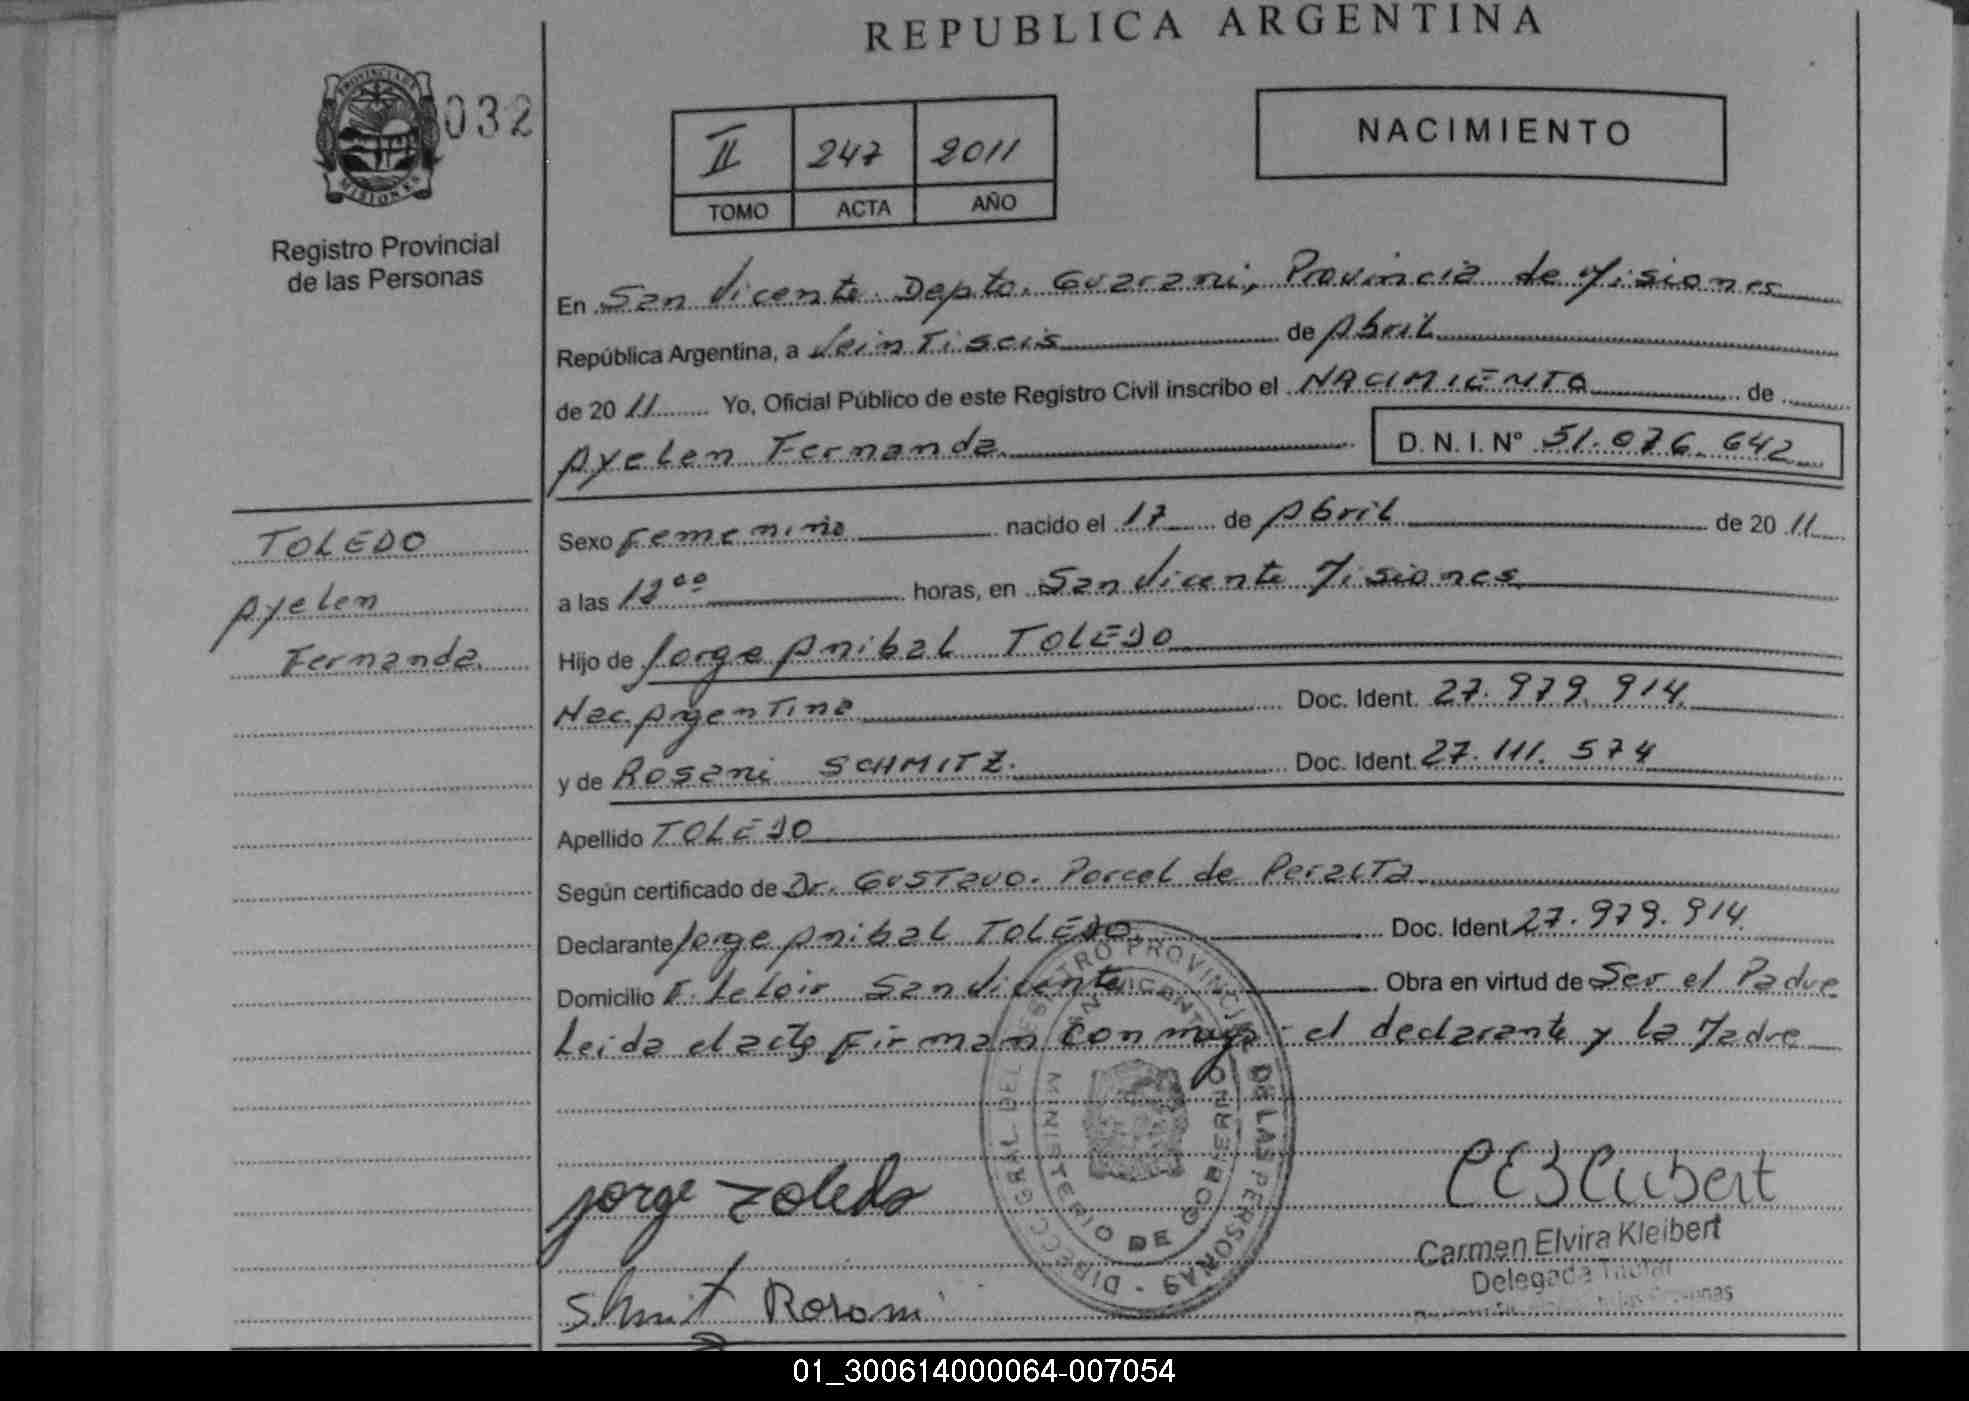 REPUBLICA ARGENTINA
PROVINCIA DE
MISIONES
032
II 247 2011
TOMO ACTA AÑO
NACIMIENTO
Registro Provincial
de las Personas
En San Vicente. Depto. Guarani, Provincia de Misiones
República Argentina, a Veintiseis de Abril
de 2011 Yo, Oficial Público de este Registro Civil inscribo el NACIMIENTO de
Ayelen Fernanda D. N. I. N° 51.076.642
TOLEDO
Ayelen
Fernanda
Sexo Femenino nacido el 17 de Abril de 2011
a las horas, en San Vicente Misiones
Hijo de Jorge Anibal TOLEDO
Nac. Argentina Doc. Ident. 27.979.914.
y de Rosani SCHMITZ. Doc. Ident. 27.111.574
Apellido TOLEDO
Según certificado de Dr. GUSTavo. Porcel de PeralTa
Declarante Jorge Anibal TOLEDO Doc. Ident 27.979.914.
Domicilio F. Leloir San Vicente Obra en virtud de Ser el Padre
Leida el acta Firman Conmigo el declarante y la Madre
DIRECC. GRAL. DEL REGISTRO PROVINCIAL DE LAS PERSONAS
MINISTERIO DE GOBIERNO
SAN VICENTE
Jorge Toledo
Shmit Rosani
Carmen Elvira Kleibert
Delegada Titular
01_300614000064-007054